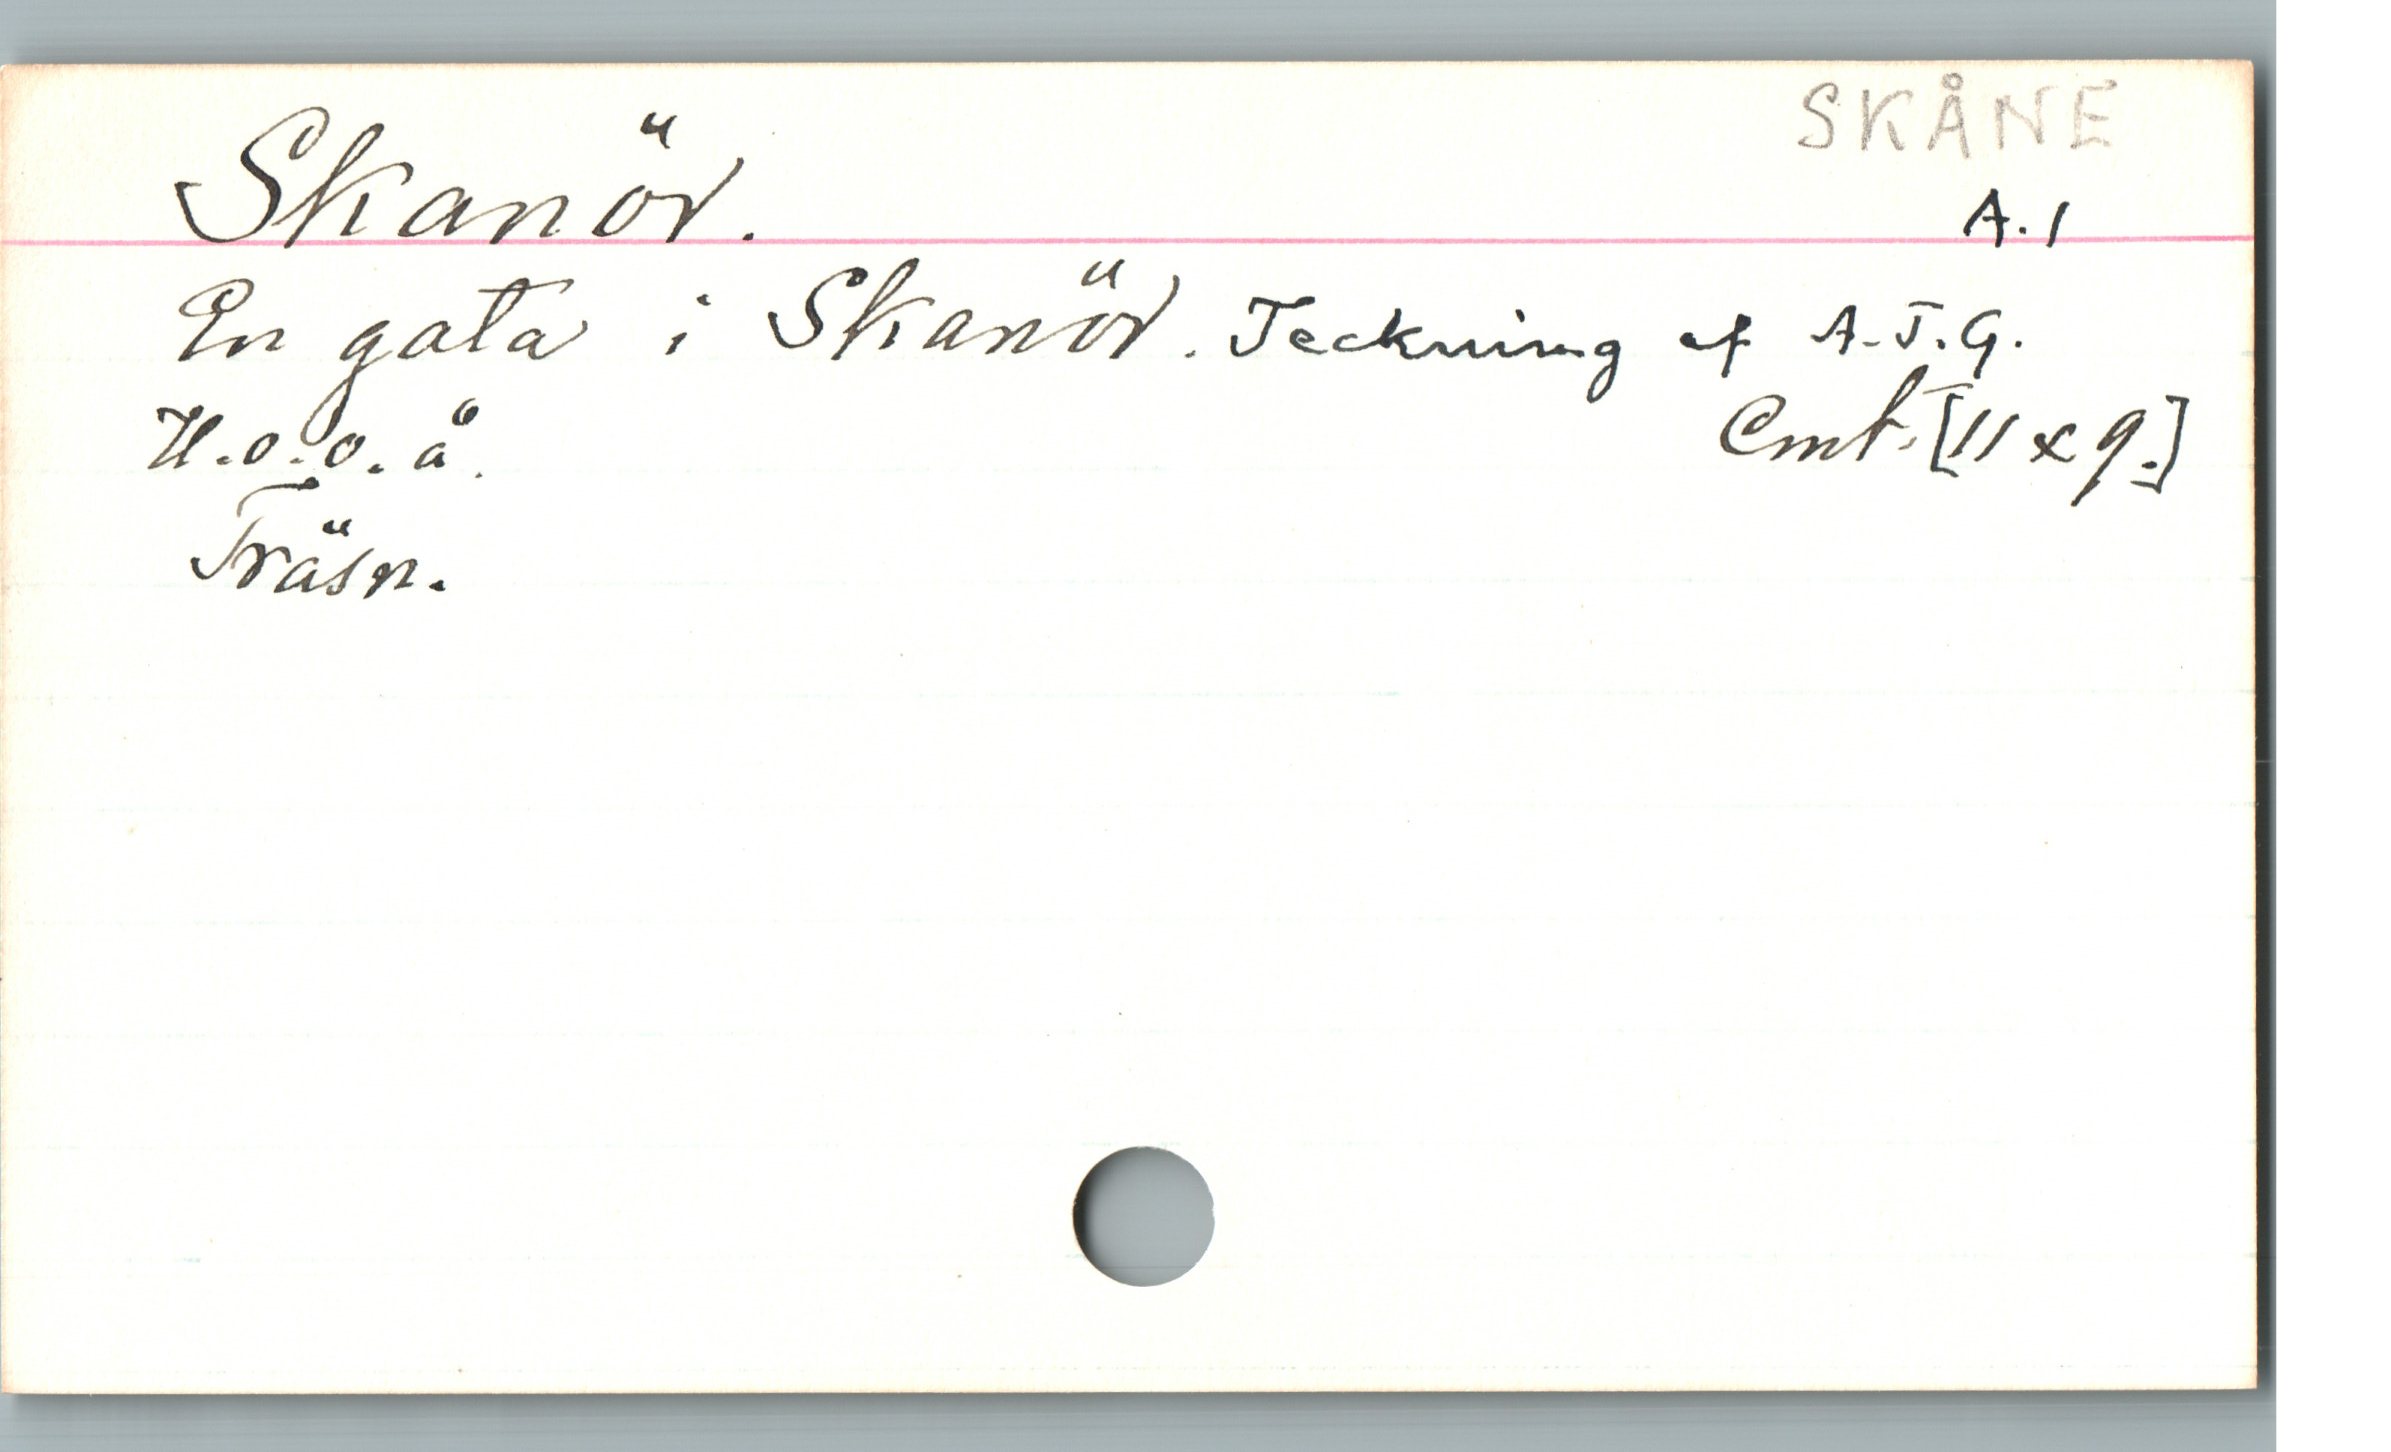 SKÅNE
Skanör.
A.1
En gata i Skanör. Teckning af A.T.G.
U.o.o.å. Cmt. [11 x 9.]
Träsn.